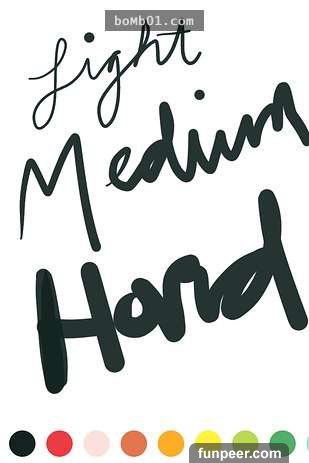 boMb01.com
Light
Medium
Hard
funpeer.com